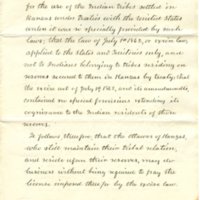 for the use of the Indian tribes settled in
Kansas under treaties with the United States
unless it was so specially provided by such
laws; that the law of July 1st 1862, or excise law
applied to the States and Territories only, and
not to Indians belonging to tribes residing on
reserves secured to them in Kansas by treaty; that
the excise act of July 1st 1862, and its amendments,
contained no special provisions extending its
cognizance to the Indian residents of these
reserves.
It follows therefore, that the Ottawas of Kansas,
who still maintain their tribal relation,
and reside upon their reserves, may do
business without being required to pay the
license imposed therefor by the excise law.